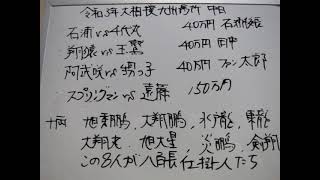 令和5年大相撲九州場所 中日
石浦vs千代丸 40万円 石州縁
翔猿vs王鷲 40万円 田中
阿武咲vs甥っ子 40万円 ファン太郎
スプリングマンvs遠藤 150万円
十両 旭秀鵬,大翔鵬,水戸龍,東龍
大翔丸,旭大星,炎鵬,剣翔
この8人が八百長仕掛人たち